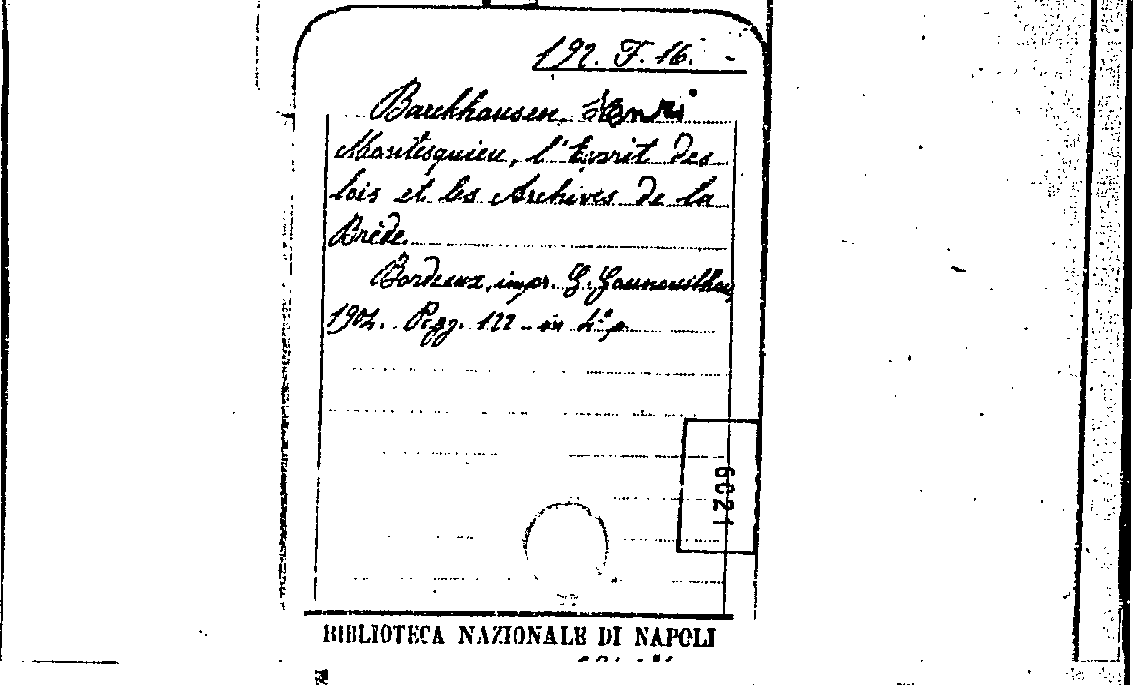 192. F. 16.
Barckhausen, Henri
Montesquieu, l'Esprit des
lois et les Archives de la
Brède.
Bordeaux, impr. G. Gounouilhou,
1904. Pagg. 122 - in 4° p
6021
BIBLIOTECA NAZIONALE DI NAPOLI